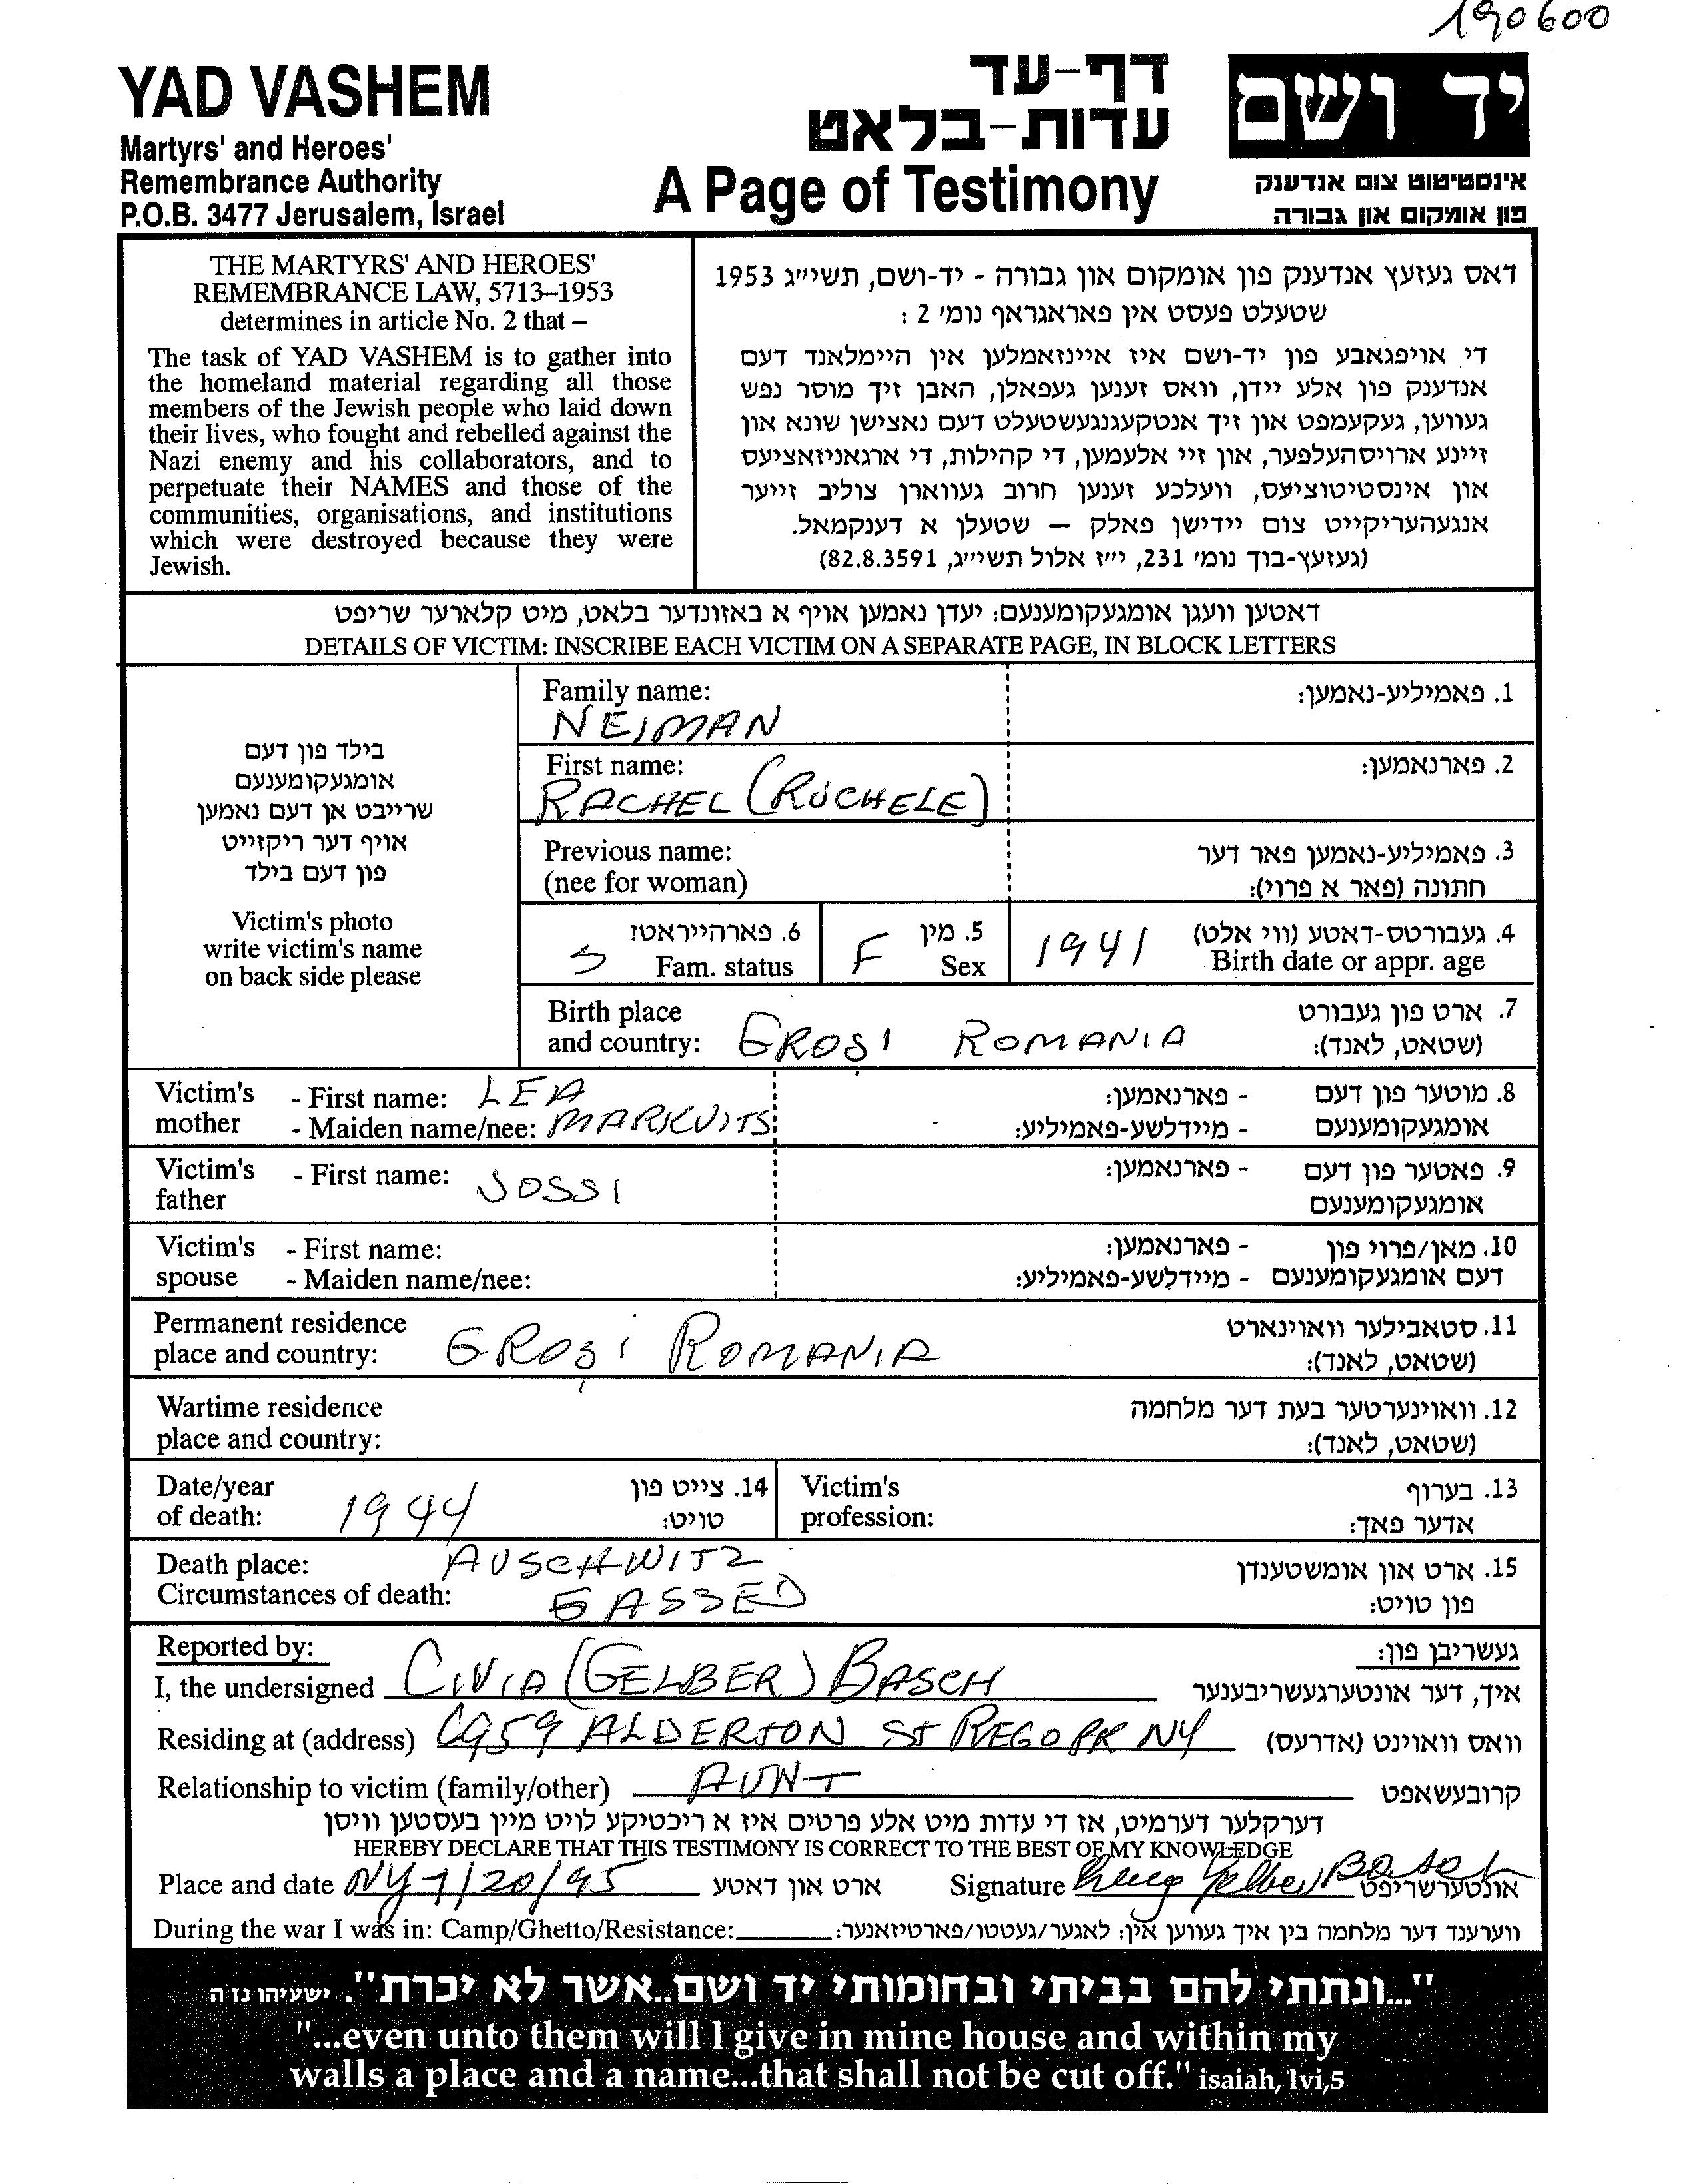 190600
YAD VASHEM
Martyrs' and Heroes'
Remembrance Authority
P.O.B. 3477 Jerusalem, Israel
דף-עד
עדות-בלאט
A Page of Testimony
יד ושם
אינסטיטוט צום אנדענק
פון אומקום און גבורה
THE MARTYRS' AND HEROES'
REMEMBRANCE LAW, 5713–1953
determines in article No. 2 that –
The task of YAD VASHEM is to gather into
the homeland material regarding all those
members of the Jewish people who laid down
their lives, who fought and rebelled against the
Nazi enemy and his collaborators, and to
perpetuate their NAMES and those of the
communities, organisations, and institutions
which were destroyed because they were
Jewish.
דאס געזעץ אנדענק פון אומקום און גבורה - יד-ושם, תשי״ג 1953
שטעלט פעסט אין פאראגראף נומ' 2 :
די אויפגאבע פון יד-ושם איז איינזאמלען אין היימלאנד דעם
אנדענק פון אלע יידן, וואס זענען געפאלן, האבן זיך מוסר נפש
געווען, געקעמפט און זיך אנטקעגנגעשטעלט דעם נאצישן שונא און
זיינע ארויסהעלפער, און זיי אלעמען, די קהילות, די ארגאניזאציעס
און אינסטיטוציעס, וועלכע זענען חרוב געווארן צוליב זייער
אנגעהעריקייט צום יידישן פאלק – שטעלן א דענקמאל.
(געזעץ-בוך נומ' 231, י״ז אלול תשי״ג, 82.8.3591)
דאטען וועגן אומגעקומענעם: יעדן נאמען אויף א באזונדער בלאט, מיט קלארער שריפט
DETAILS OF VICTIM: INSCRIBE EACH VICTIM ON A SEPARATE PAGE, IN BLOCK LETTERS
בילד פון דעם
אומגעקומענעם
שרייבט אן דעם נאמען
אויף דער ריקזייט
פון דעם בילד
Victim's photo
write victim's name
on back side please
Family name: 1. פאמיליע-נאמען:
NEIMAN
First name: 2. פארנאמען:
RACHEL (RUCHELE)
Previous name: 3. פאמיליע-נאמען פאר דער
(nee for woman) חתונה (פאר א פרוי):
6. פארהייראט? 5. מין 4. געבורטס-דאטע (ווי אלט)
S Fam. status F Sex 1941 Birth date or appr. age
Birth place 7. ארט פון געבורט
and country: GROSI ROMANIA (שטאט, לאנד):
Victim's - First name: LEA - פארנאמען: 8. מוטער פון דעם
mother - Maiden name/nee: MARKUITS - מיידלשע-פאמיליע: אומגעקומענעם
Victim's - First name: JOSSI - פארנאמען: 9. פאטער פון דעם
father אומגעקומענעם
Victim's - First name: - פארנאמען: 10. מאן/פרוי פון
spouse - Maiden name/nee: - מיידלשע-פאמיליע: דעם אומגעקומענעם
Permanent residence 11. סטאבילער וואוינארט
place and country: GROSI ROMANIA (שטאט, לאנד):
Wartime residence 12. וואוינערטער בעת דער מלחמה
place and country: (שטאט, לאנד):
Date/year 14. צייט פון Victim's 13. בערוף
of death: 1944 טויט: profession: אדער פאך:
Death place: AUSCHWITZ 15. ארט און אומשטענדן
Circumstances of death: GASSED פון טויט:
Reported by: געשריבן פון:
I, the undersigned CIVIA (GELBER) BASCH איך, דער אונטערגעשריבענער
Residing at (address) C959 ALDERTON ST REGO PK NY וואס וואוינט (אדרעס)
Relationship to victim (family/other) AUNT קרובעשאפט
דערקלער דערמיט, אז די עדות מיט אלע פרטים איז א ריכטיקע לויט מיין בעסטען וויסן
HEREBY DECLARE THAT THIS TESTIMONY IS CORRECT TO THE BEST OF MY KNOWLEDGE
Place and date NY 1/20/95 ארט און דאטע Signature Gelber Basch אונטערשריפט
During the war I was in: Camp/Ghetto/Resistance: ווערענד דער מלחמה בין איך געווען אין: לאגער/געטטו/פארטיזאנער:
"...ונתתי להם בביתי ובחומותי יד ושם..אשר לא יכרת". ישעיהו נז ה
"...even unto them will I give in mine house and within my
walls a place and a name...that shall not be cut off." isaiah, lvi,5